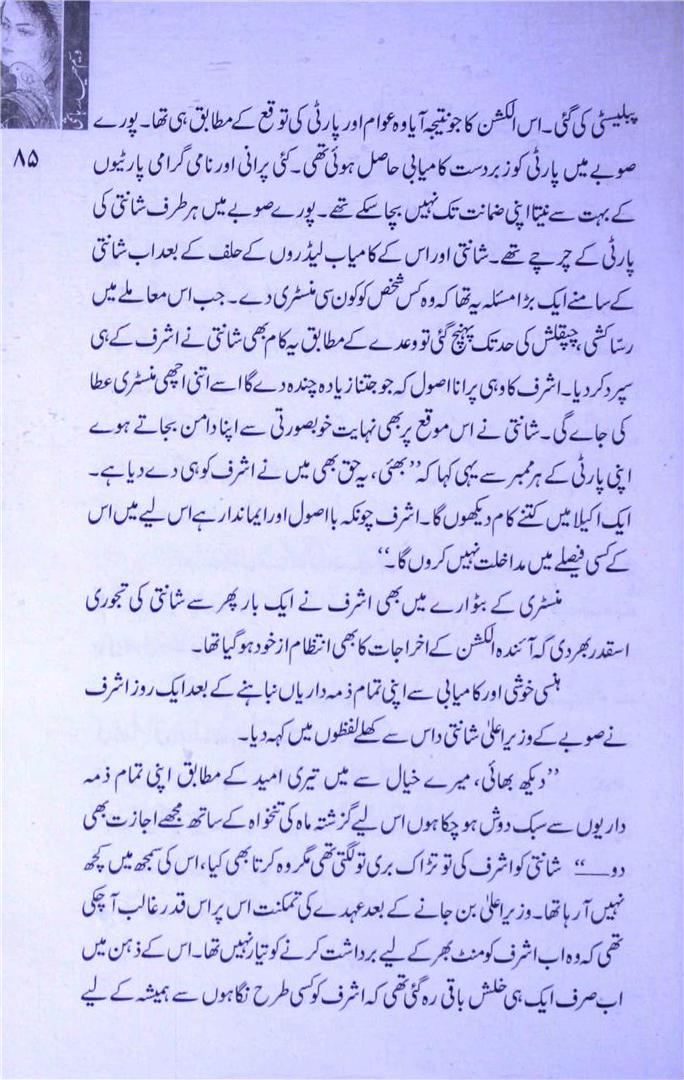 ۸۵
پبلیسٹی کی گئی۔ اس الکشن کا جو نتیجہ آیا وہ عوام اور پارٹی کی توقع کے مطابق ہی تھا۔ پورے
صوبے میں پارٹی کو زبردست کامیابی حاصل ہوئی تھی۔ کئی پرانی اور نامی گرامی پارٹیوں
کے بہت سے نیتا اپنی ضمانت تک نہیں بچا سکے تھے۔ پورے صوبے میں ہر طرف شانتی کی
پارٹی کے چرچے تھے۔ شانتی اور اس کے کامیاب لیڈروں کے حلف کے بعد اب شانتی
کے سامنے ایک بڑا مسئلہ یہ تھا کہ وہ کس شخص کو کون سی منسٹری دے۔ جب اس معاملے میں
رسّا کشی، چپقلش کی حد تک پہنچ گئی تو وعدے کے مطابق یہ کام بھی شانتی نے اشرف کے ہی
سپرد کر دیا۔ اشرف کا وہی پرانا اصول کہ جو جتنا زیادہ چندہ دے گا اسے اتنی اچھی منسٹری عطا
کی جاے گی۔ شانتی نے اس موقع پر بھی نہایت خوبصورتی سے اپنا دامن بچاتے ہوے
اپنی پارٹی کے ہر ممبر سے یہی کہا کہ ’’بھئی، یہ حق بھی میں نے اشرف کو ہی دے دیا ہے۔
ایک اکیلا میں کتنے کام دیکھوں گا۔ اشرف چونکہ با اصول اور ایماندار ہے اس لیے میں اس
کے کسی فیصلے میں مداخلت نہیں کروں گا۔‘‘
منسٹری کے بٹوارے میں بھی اشرف نے ایک بار پھر سے شانتی کی تجوری
اسقدر بھر دی کہ آئندہ الکشن کے اخراجات کا بھی انتظام از خود ہو گیا تھا۔
ہنسی خوشی اور کامیابی سے اپنی تمام ذمہ داریاں نباہنے کے بعد ایک روز اشرف
نے صوبے کے وزیر اعلیٰ شانتی داس سے کھلے لفظوں میں کہہ دیا۔
’’دیکھ بھائی، میرے خیال سے میں تیری امید کے مطابق اپنی تمام ذمہ
داریوں سے سبک دوش ہو چکا ہوں اس لیے گزشتہ ماہ کی تنخواہ کے ساتھ مجھے اجازت بھی
دو___‘‘ شانتی کو اشرف کی تو تڑاک بری تو لگتی تھی مگر وہ کرتا بھی کیا، اس کی سمجھ میں کچھ
نہیں آ رہا تھا۔ وزیر اعلیٰ بن جانے کے بعد عہدے کی تمکنت اس پر اس قدر غالب آ چکی
تھی کہ وہ اب اشرف کو منٹ بھر کے لیے برداشت کرنے کو تیار نہیں تھا۔ اس کے ذہن میں
اب صرف ایک ہی خلش باقی رہ گئی تھی کہ اشرف کو کسی طرح نگاہوں سے ہمیشہ کے لیے